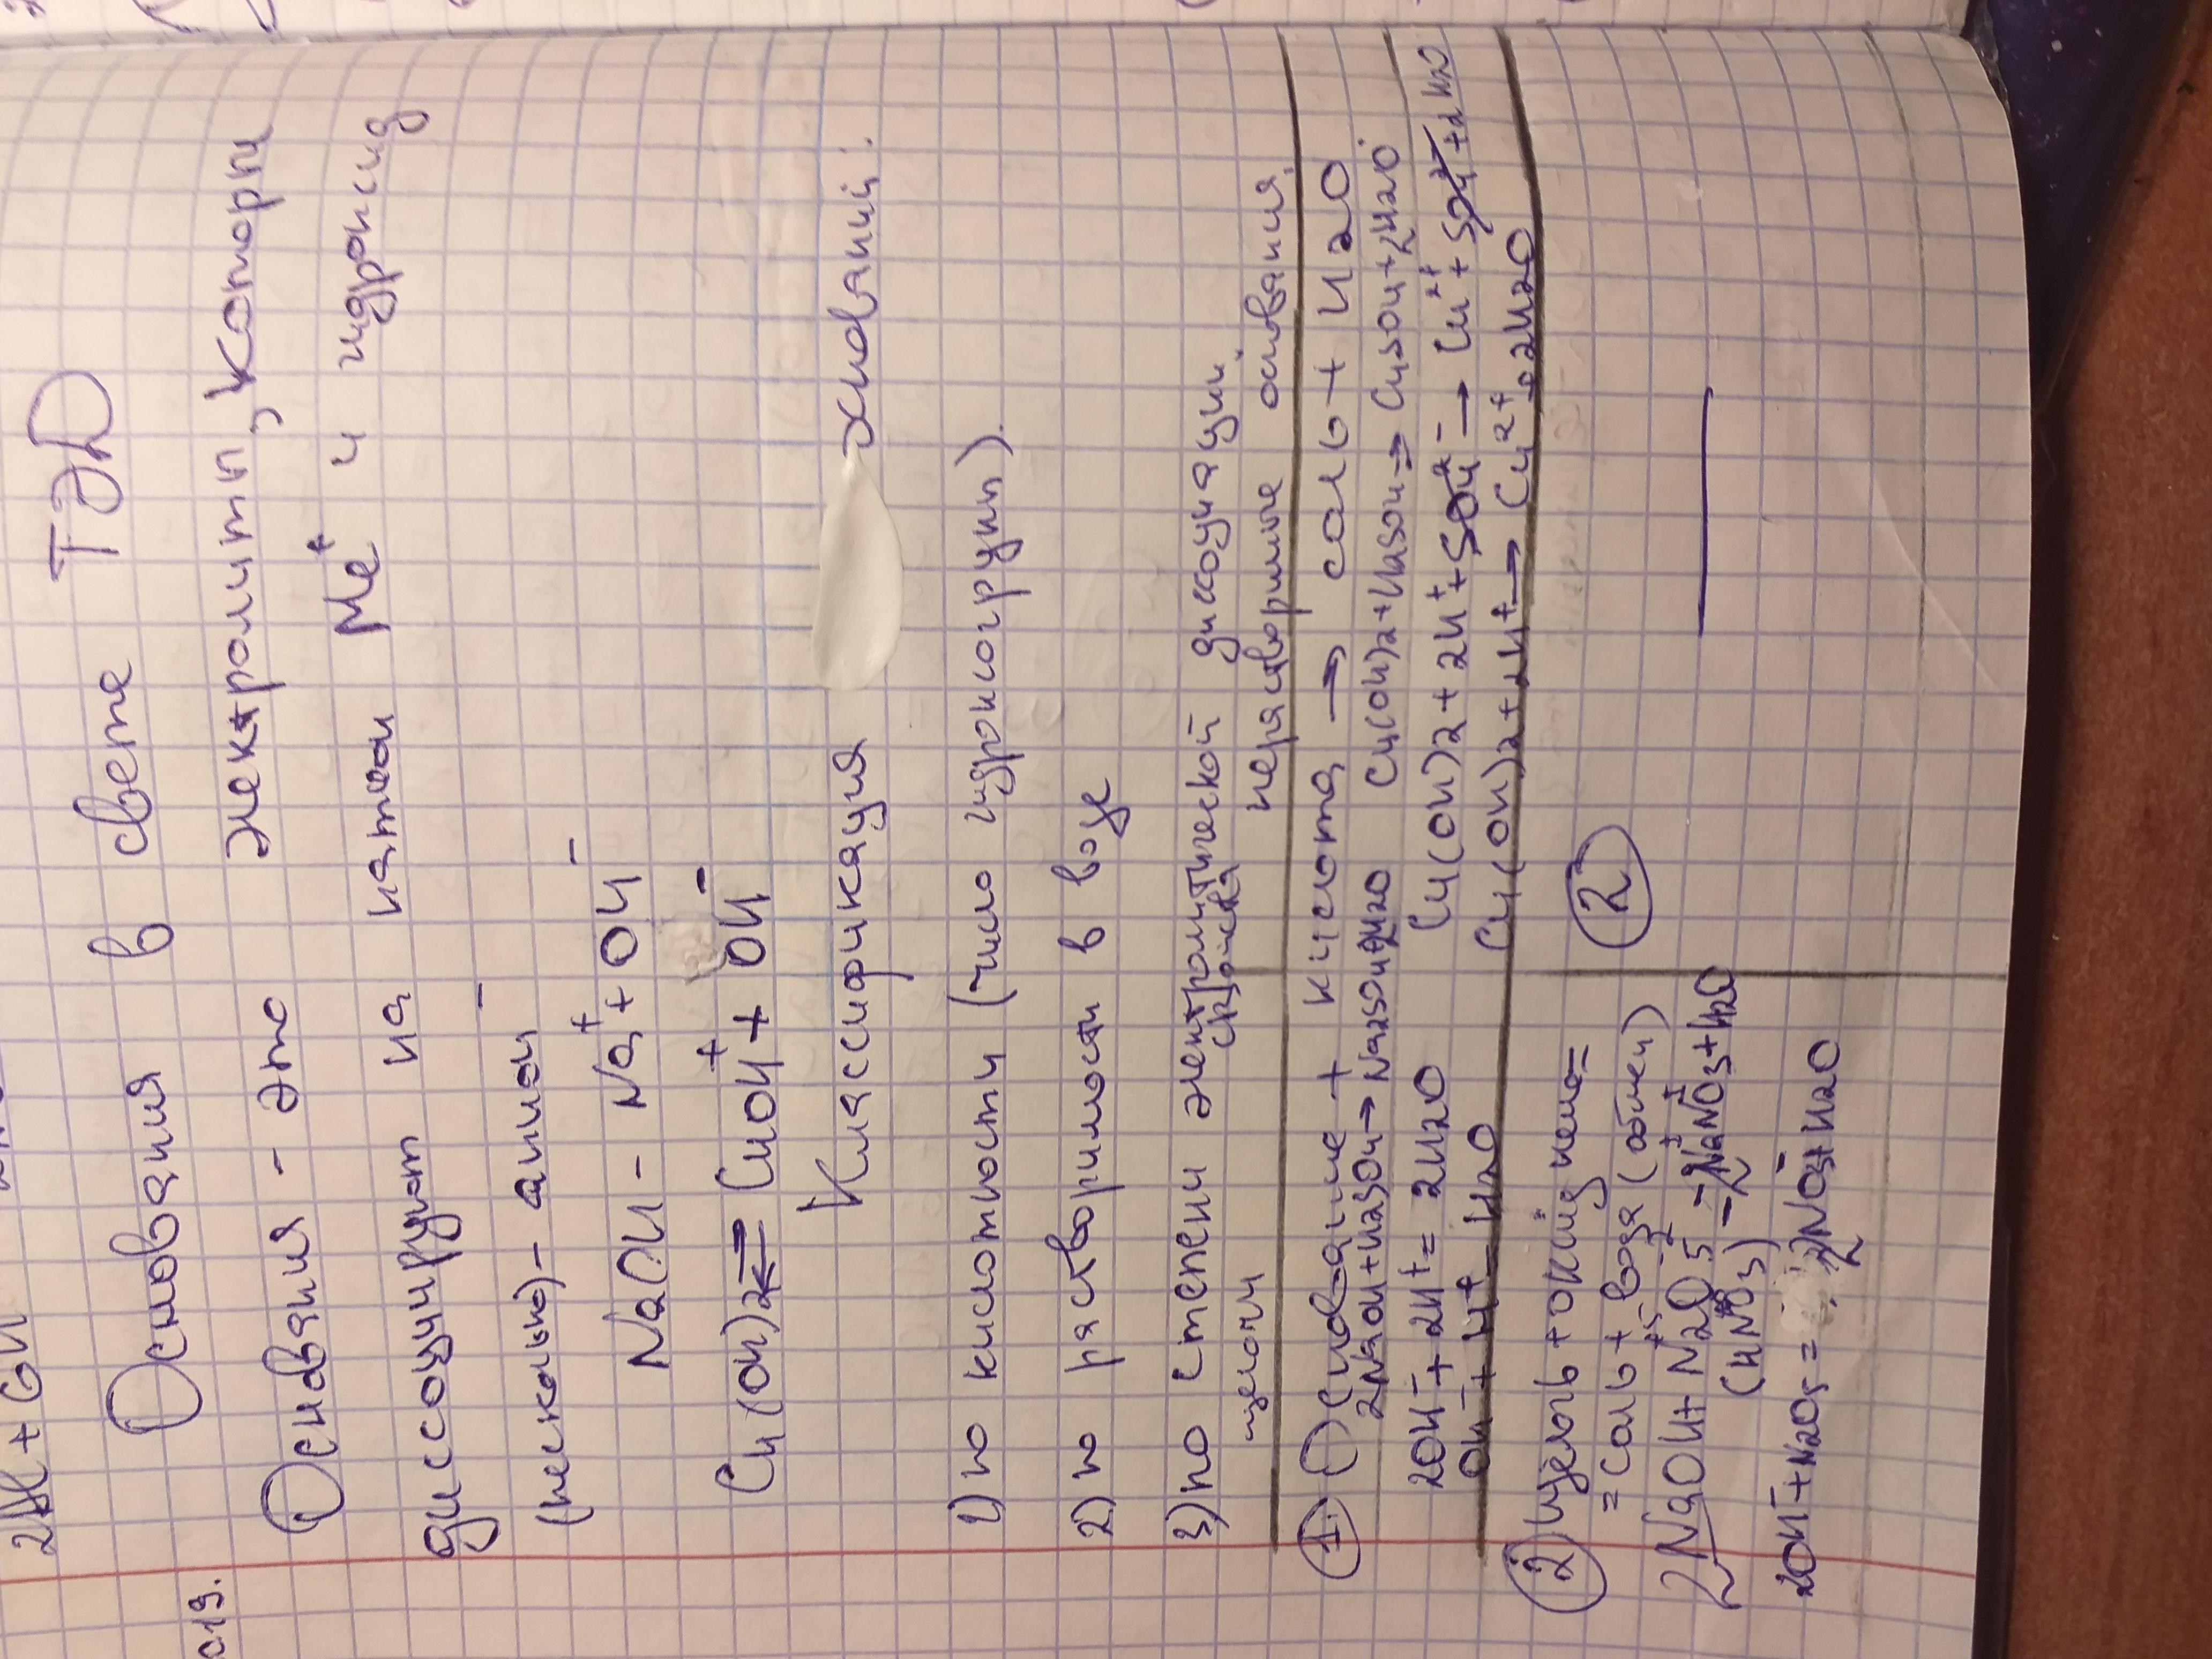 2Al + 6H
019.
Основания в свете ТЭД
Основания - это электролиты, которы
диссоциируют на катион Me⁺ и гидроксид
(несколько) - анион⁻
NaOH - Na⁺ + OH⁻
Cu(OH)2 ⇄ CuOH⁺ + OH⁻
Классификация оснований:
1) по кислотности (число гидроксогрупп).
2) по растворимости в воде
3) по степени электролитической диссоциации.
свойства
щелочи
нерастворимые основания
① Основание + кислота → соль + H2O
2NaOH + H2SO4 → Na2SO4 + 2H2O
Cu(OH)2 + H2SO4 → CuSO4 + 2H2O
2OH⁻ + 2H⁺ = 2H2O
Cu(OH)2 + 2H⁺ + SO4²⁻ → Cu²⁺ + SO4²⁻ + 2H2O
OH⁻ + H⁺ - H2O
Cu(OH)2 + 2H⁺ → Cu²⁺ + 2H2O
② щелочь + оксид неме=
= соль + вода (обмен)
2NaOH + N2⁺⁵O5⁻² - 2Na⁺NO3⁻ + H2O
(HNO3)
2OH⁻ + N2O5 = 2NO3⁻ + H2O
②